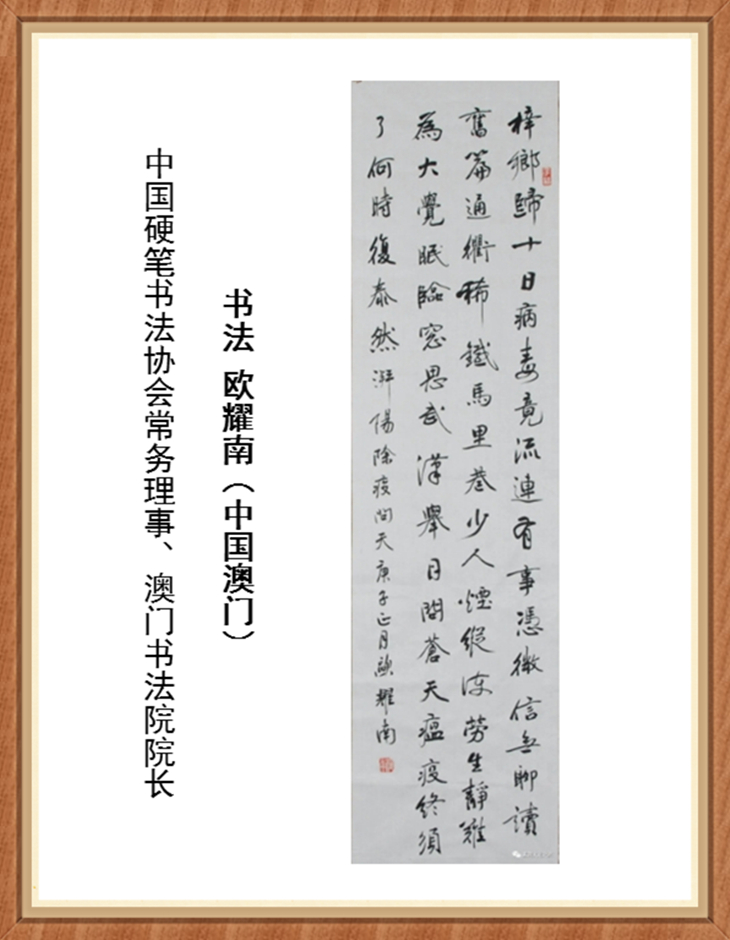 梓鄉歸十日病毒竟流連有事憑微信無聊讀
舊篇通衢稀鐵馬里巷少人煙縱勞生靜難
為大覺眠臨窓思武漢舉目問蒼天瘟疫終須
了何時復泰然 除疫問天庚子正月歐耀南
书法 欧耀南（中国澳门）
中国硬笔书法协会常务理事、澳门书法院院长